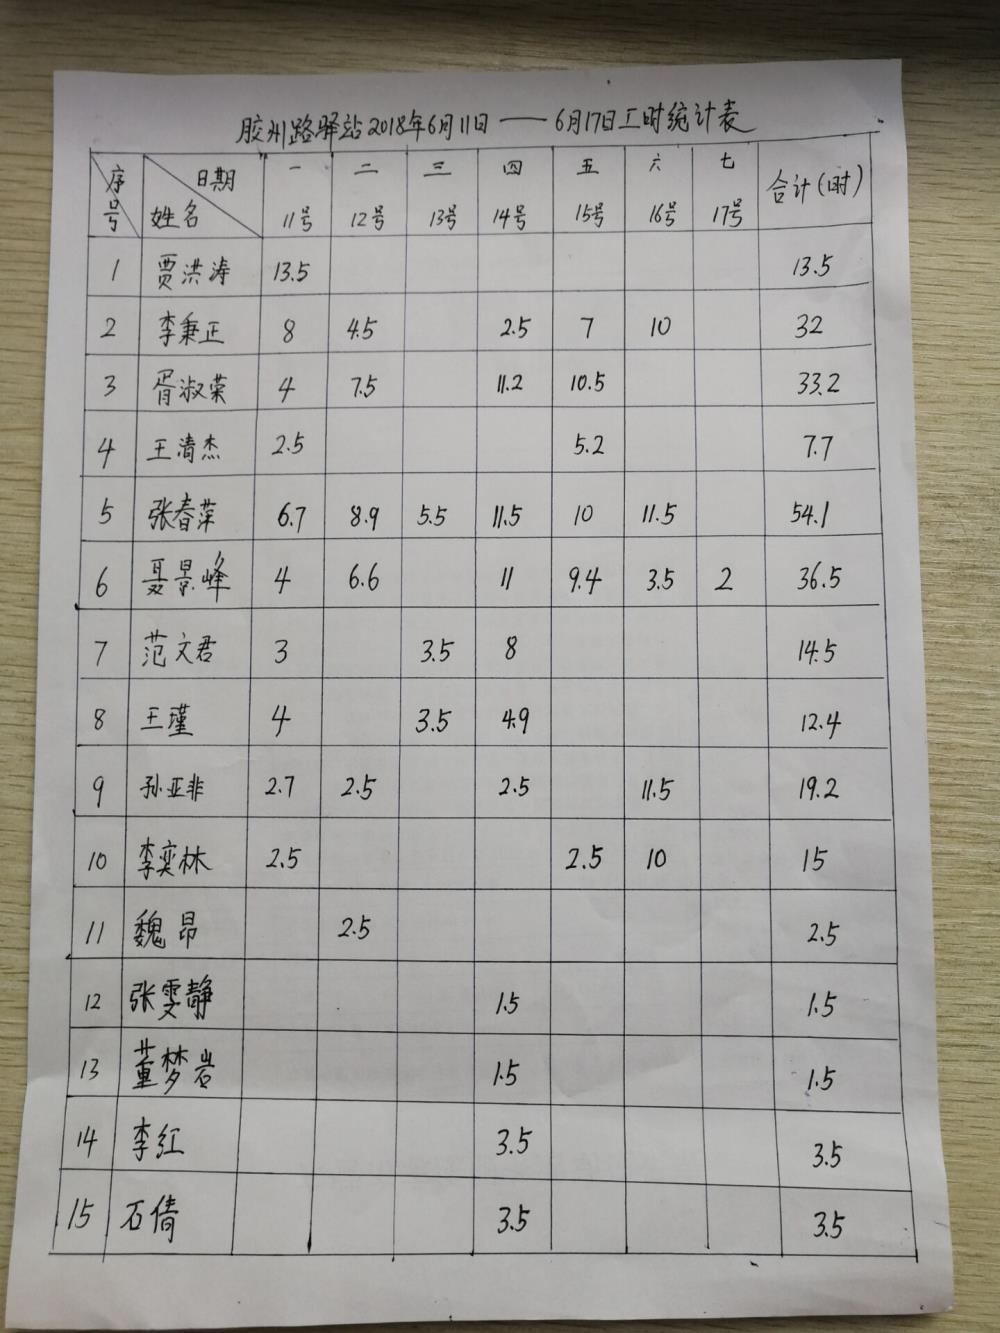 胶州路驿站2018年6月11日——6月17日工时统计表
序号 日期 姓名 一 11号 二 12号 三 13号 四 14号 五 15号 六 16号 七 17号 合计(时)
1 贾洪涛 13.5 13.5
2 李秉正 8 4.5 2.5 7 10 32
3 胥淑荣 4 7.5 11.2 10.5 33.2
4 王清杰 2.5 5.2 7.7
5 张春萍 6.7 8.9 5.5 11.5 10 11.5 54.1
6 聂景峰 4 6.6 11 9.4 3.5 2 36.5
7 范文君 3 3.5 8 14.5
8 王瑾 4 3.5 4.9 12.4
9 孙亚非 2.7 2.5 2.5 11.5 19.2
10 李奕林 2.5 2.5 10 15
11 魏昂 2.5 2.5
12 张雯静 1.5 1.5
13 董梦岩 1.5 1.5
14 李红 3.5 3.5
15 石倩 3.5 3.5